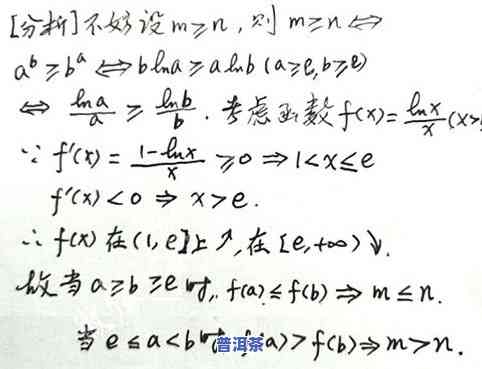 [分析]不妨设 m≥n, 则 m≥n ⇔
a^b ≥ b^a ⇔ blna ≥ alnb (a≥e, b≥e)
⇔ lna/a ≥ lnb/b. 考虑函数 f(x)= lnx/x (x>
∵ f'(x) = (1-lnx)/x ≥0 ⇒ 1<x≤e
f'(x)<0 ⇒ x>e.
∴ f(x) 在(1,e]上↗, 在[e,+∞)↘.
故当 a≥b≥e 时, f(a)≤f(b) ⇒ m≤n.
当 e≤a<b时 f(a)>f(b)⇒m>n.
普洱茶